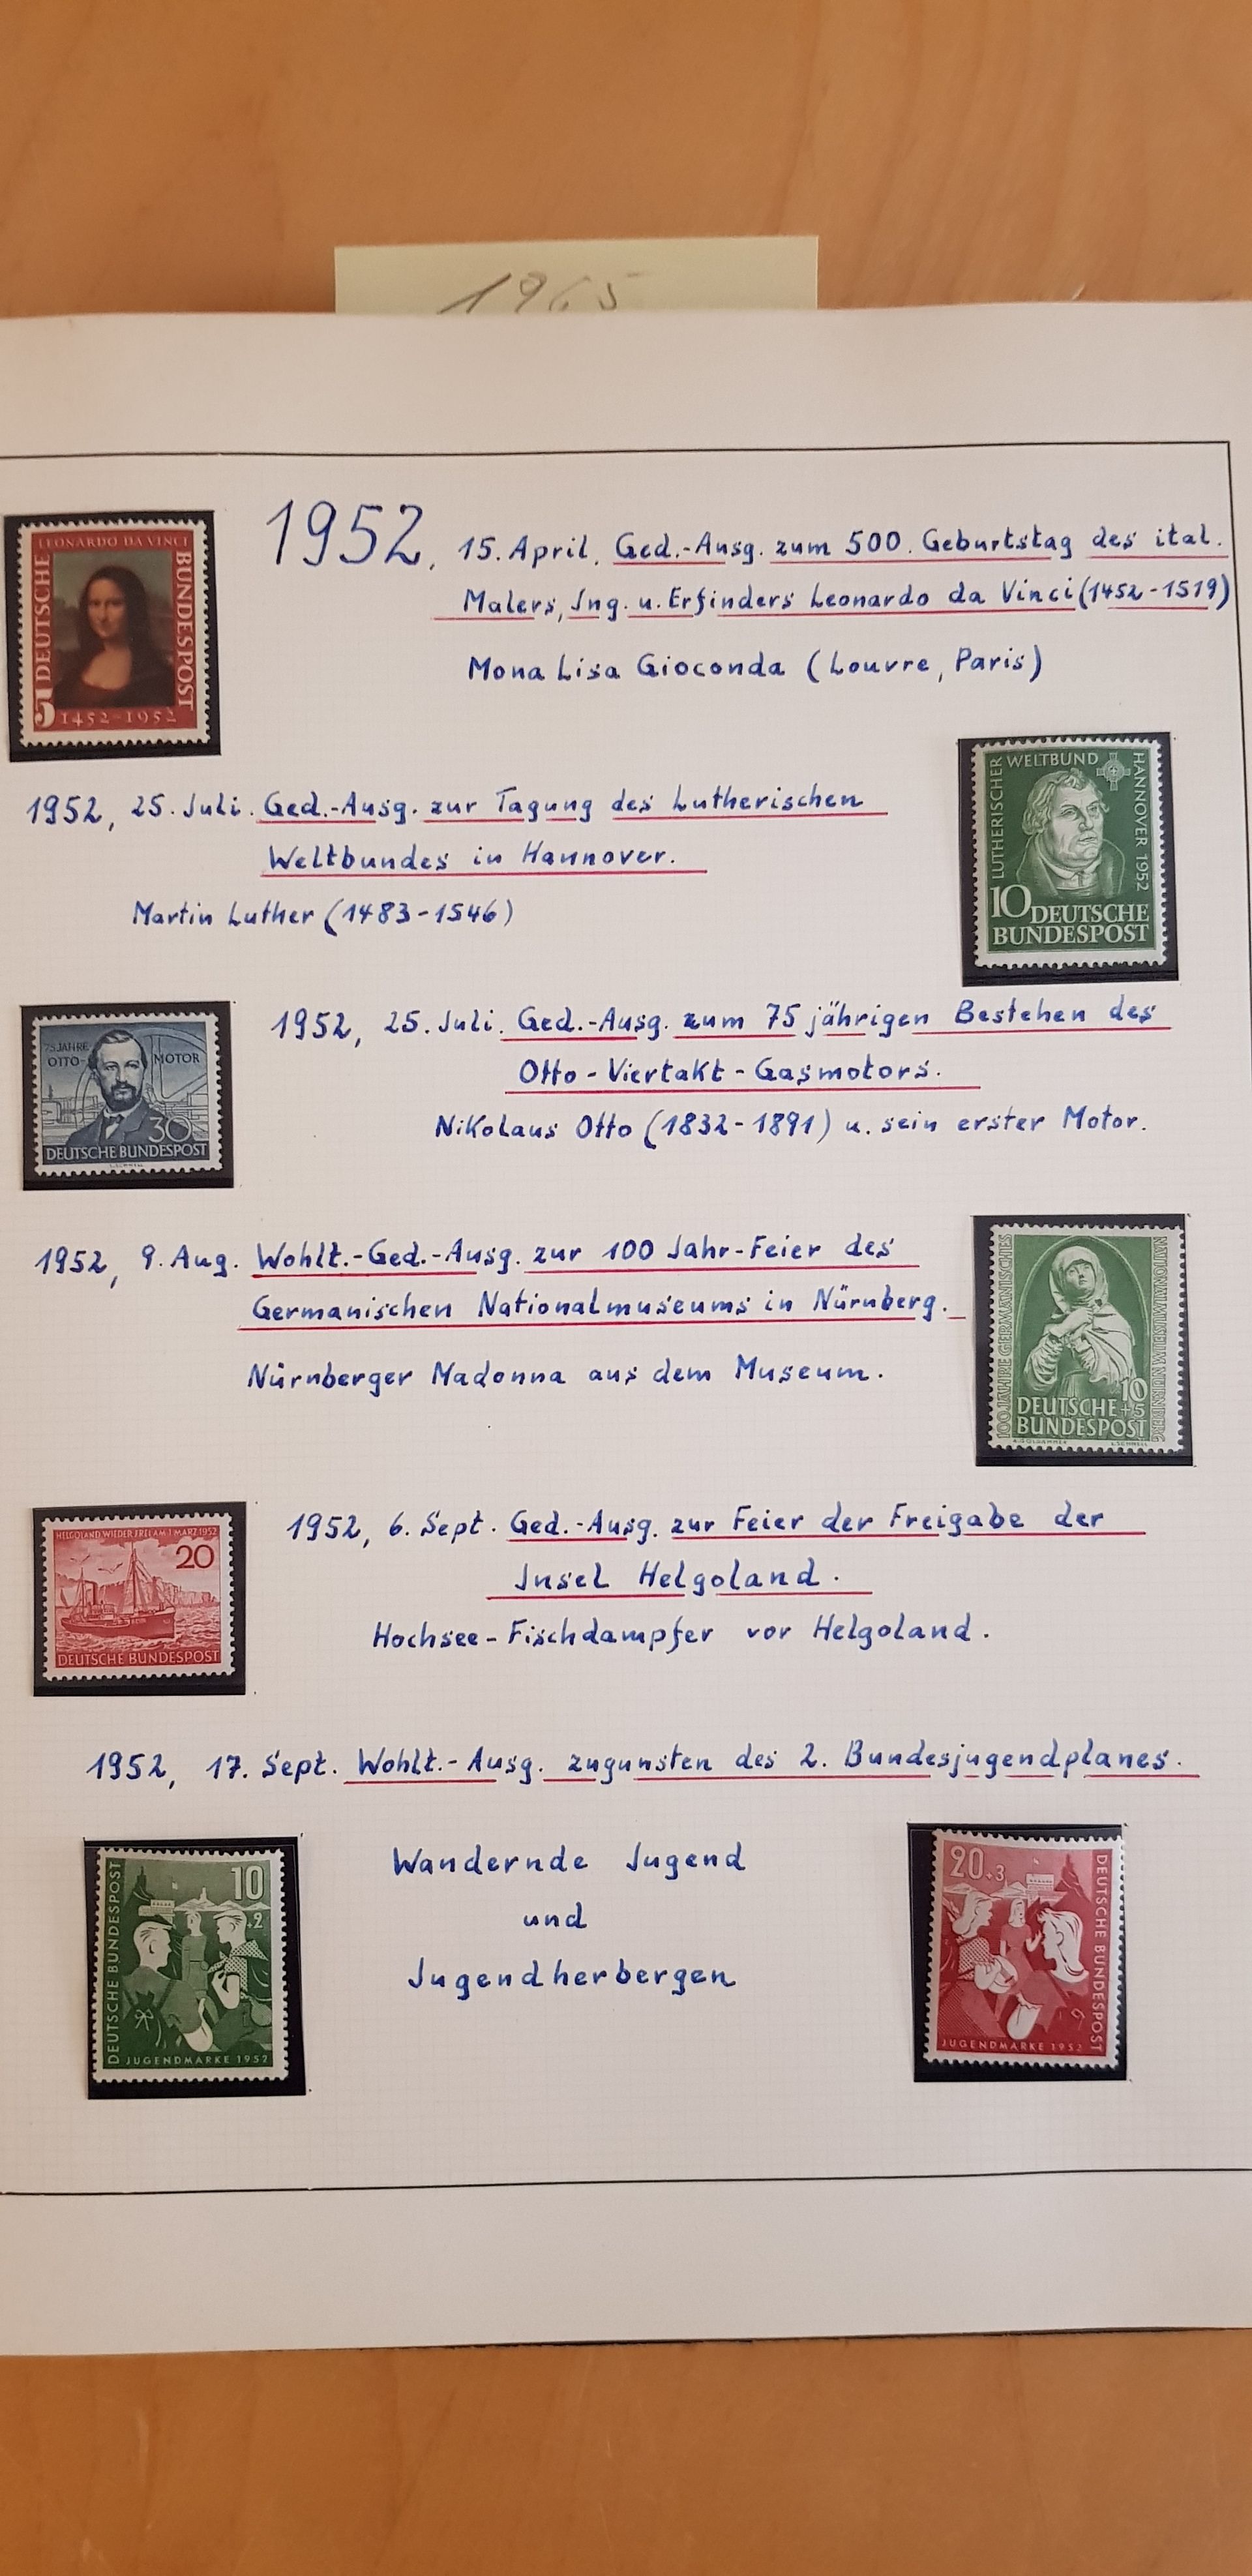 1965
LEONARDO DA VINCI
DEUTSCHE
BUNDESPOST
5
1452-1952
1952, 15. April. Ged.-Ausg. zum 500. Geburtstag des ital.
Malers, Ing. u. Erfinders Leonardo da Vinci (1452-1519)
Mona Lisa Gioconda (Louvre, Paris)
1952, 25. Juli. Ged.-Ausg. zur Tagung des Lutherischen
Weltbundes in Hannover.
Martin Luther (1483-1546)
LUTHERISCHER
WELTBUND
HANNOVER 1952
10 DEUTSCHE
BUNDESPOST
75 JAHRE
OTTO-MOTOR
30
DEUTSCHE BUNDESPOST
1952, 25. Juli. Ged.-Ausg. zum 75 jährigen Bestehen des
Otto-Viertakt-Gasmotors.
Nikolaus Otto (1832-1891) u. sein erster Motor.
1952, 9. Aug. Wohlt.-Ged.-Ausg. zur 100 Jahr-Feier des
Germanischen Nationalmuseums in Nürnberg.
Nürnberger Madonna aus dem Museum.
100 JAHRE GERMANISCHES
NATIONALMUSEUM NÜRNBERG
10
DEUTSCHE +5
BUNDESPOST
HELGOLAND WIEDER FREI AM 1. MÄRZ 1952
20
DEUTSCHE BUNDESPOST
1952, 6. Sept. Ged.-Ausg. zur Feier der Freigabe der
Insel Helgoland.
Hochsee-Fischdampfer vor Helgoland.
1952, 17. Sept. Wohlt.-Ausg. zugunsten des 2. Bundesjugendplanes.
DEUTSCHE BUNDESPOST
10
+2
JUGENDMARKE 1952
Wandernde Jugend
und
Jugendherbergen
20+3
DEUTSCHE BUNDESPOST
JUGENDMARKE 1952